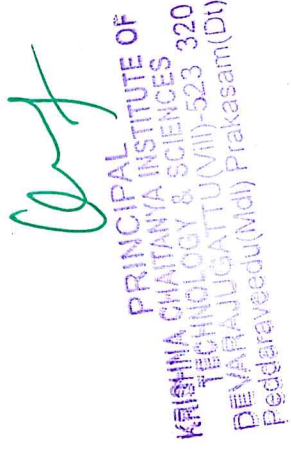 PRINCIPAL
KRISHNA CHAITANYA INSTITUTE OF
TECHNOLOGY & SCIENCES
DEVARAJUGATTU(Vill)-523 320
Peddaraveedu(Mdl) Prakasam(Dt)